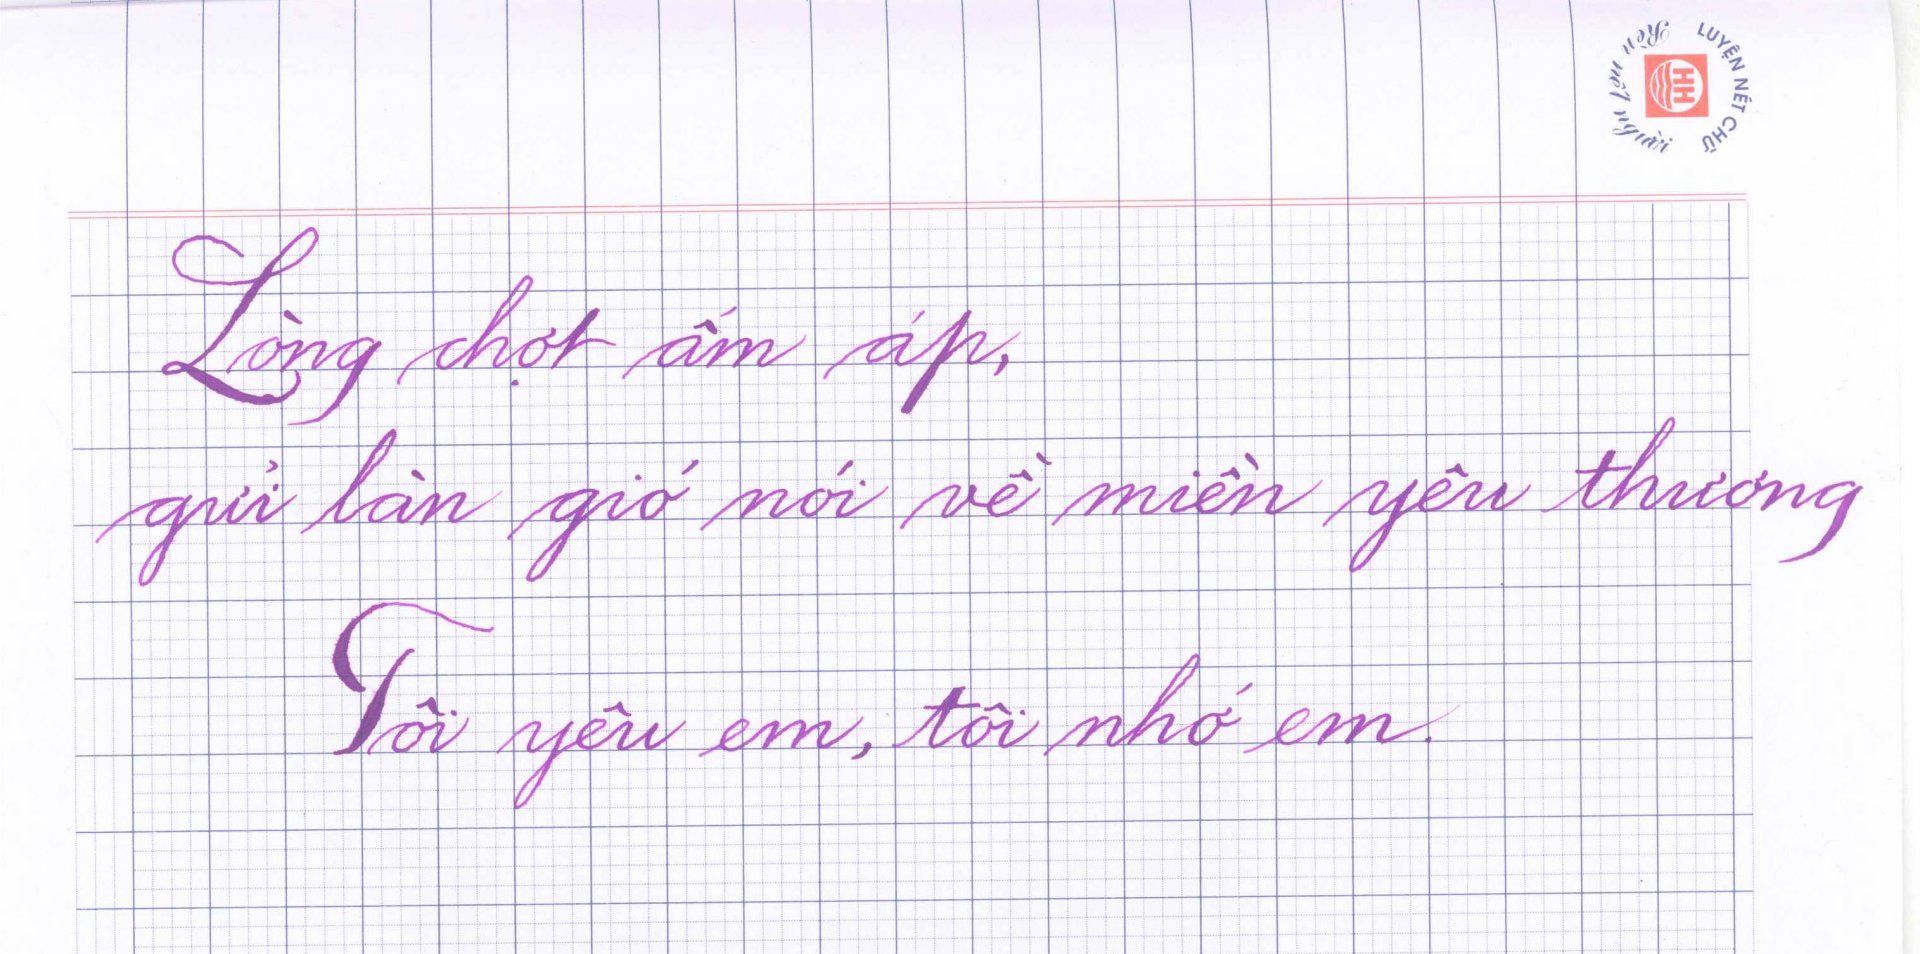 Rèn nết người
LUYỆN NÉT CHỮ
HH
Lòng chợt ấm áp,
gửi làn gió nói về miền yêu thương
Tôi yêu em, tôi nhớ em.